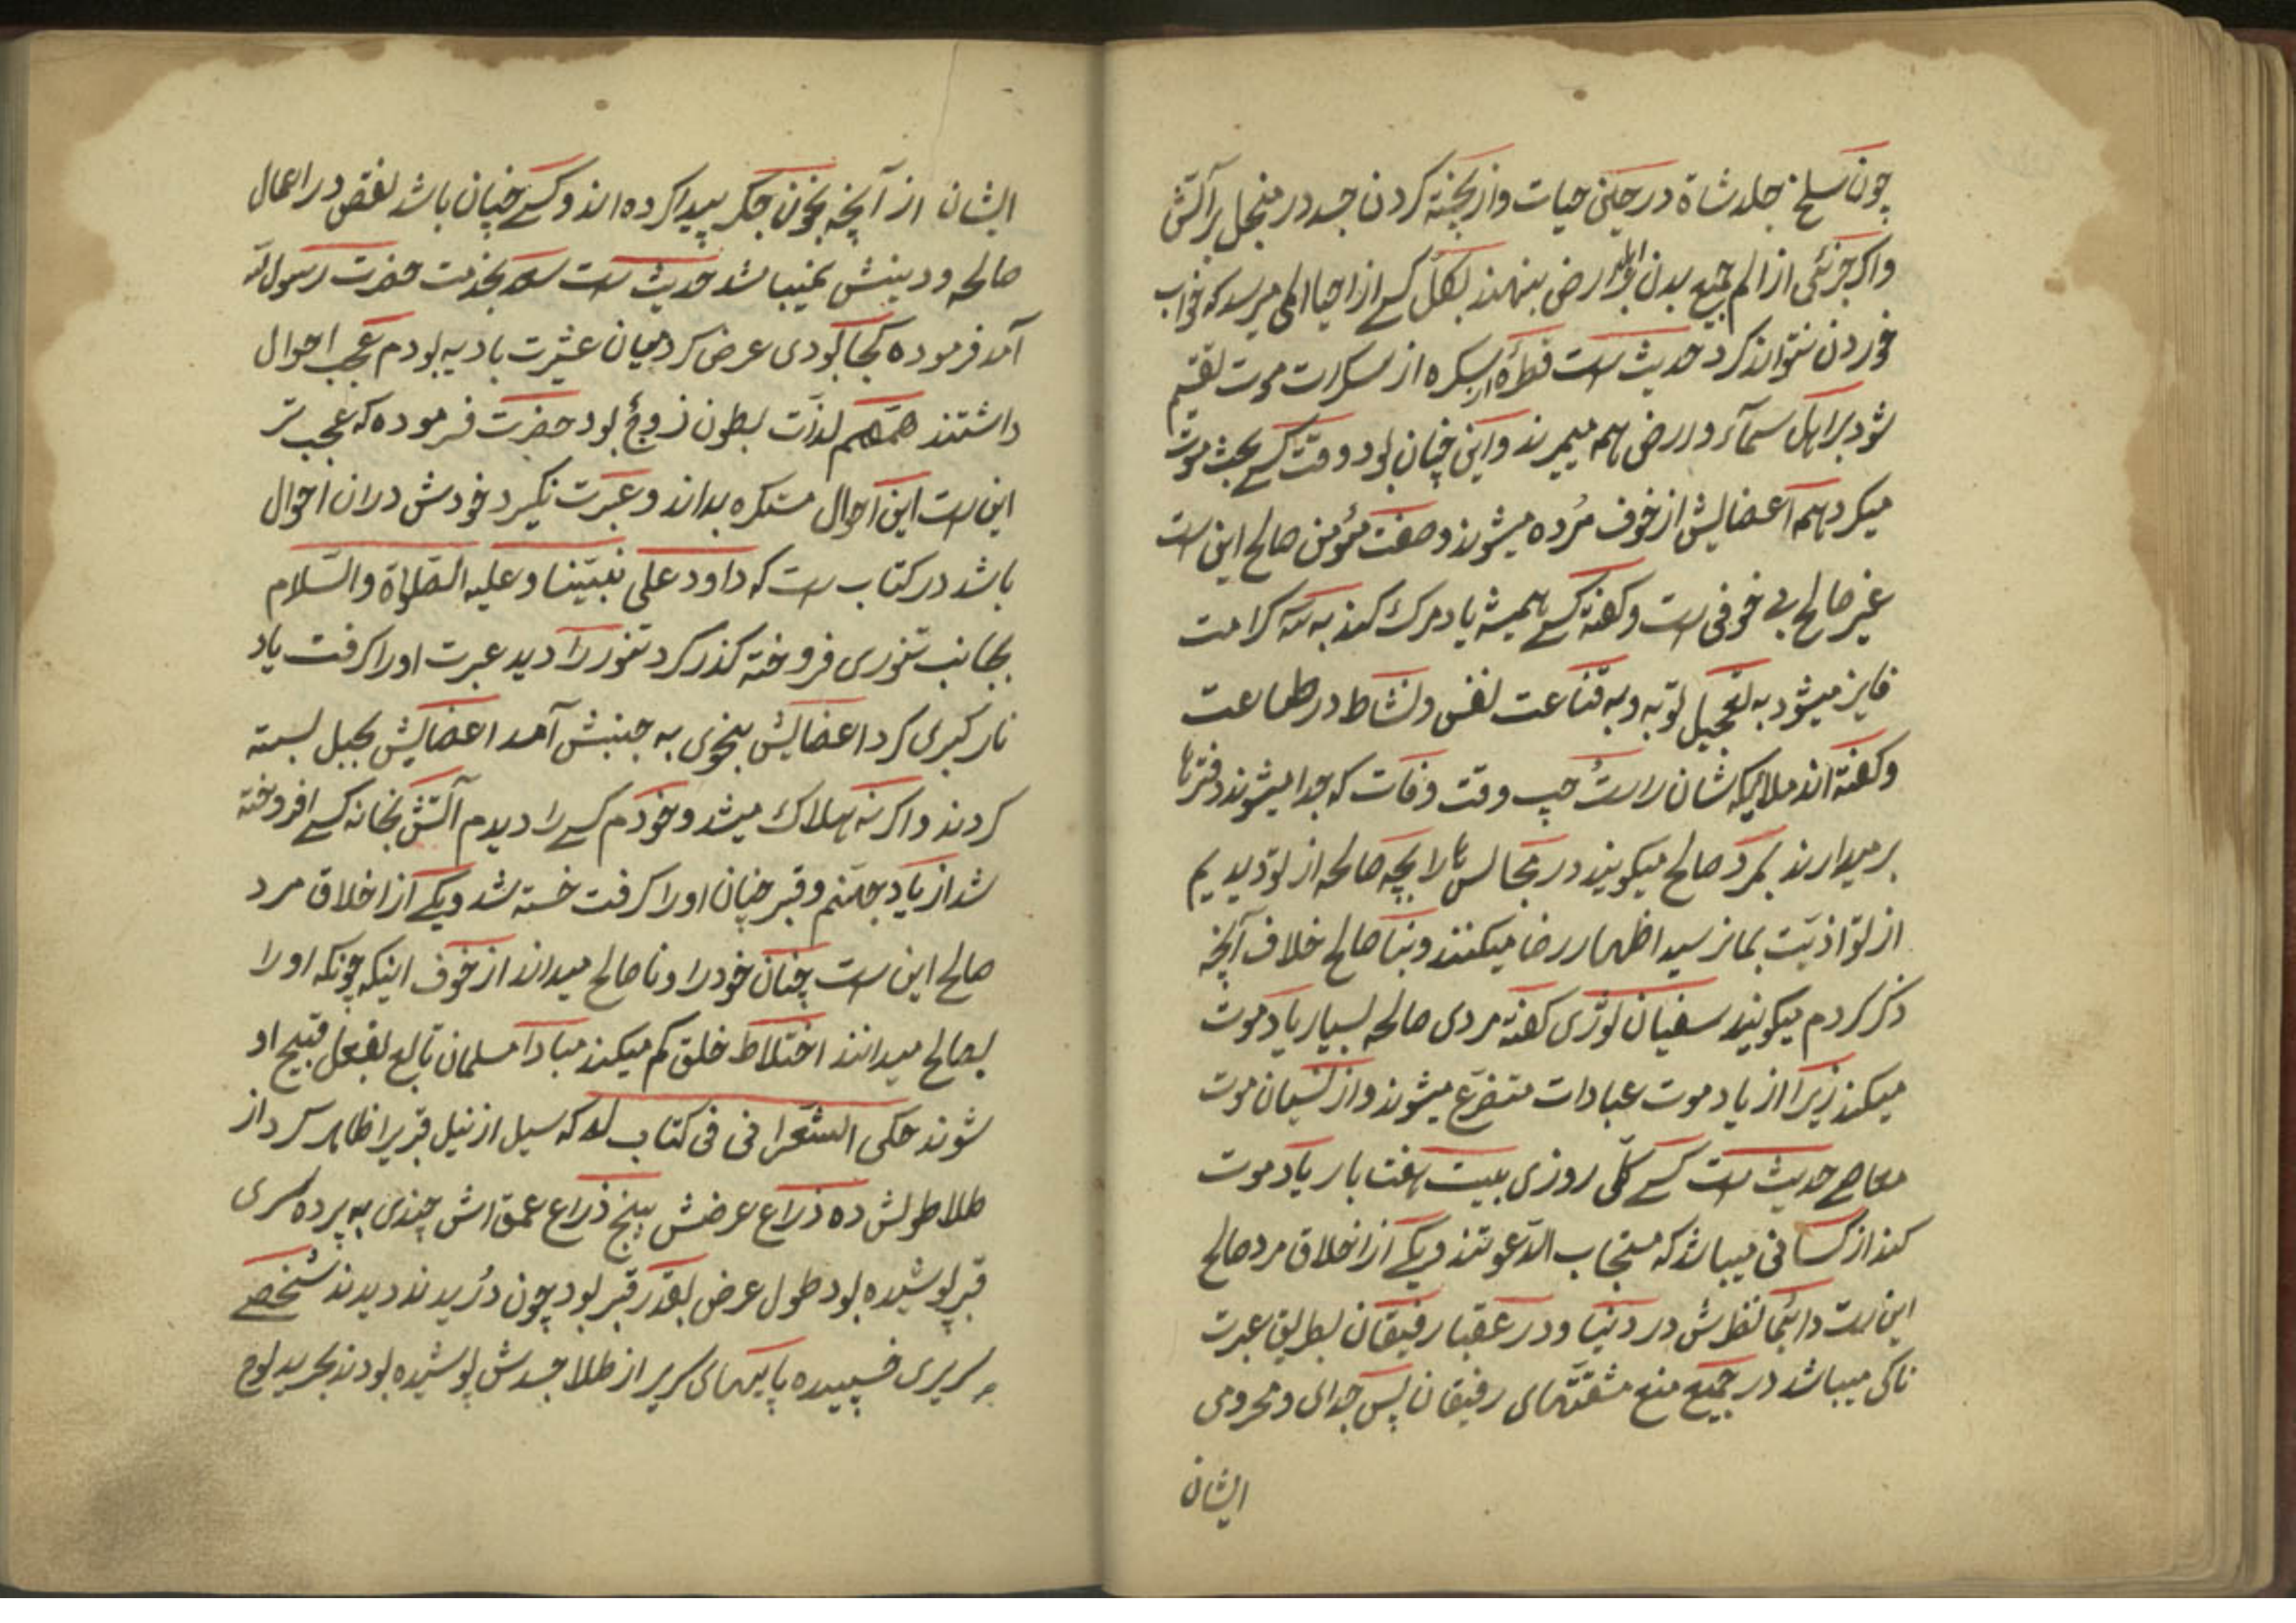 چون سلخ جلد شاة در حین حیات و از پخته کردن جسد در منجل بر آتش
و اگر جزئی از الم جمیع بدن ارض بنهند بکل کسے از احیا المی میرسد که خواب
خوردن نتواند کرد حدیث است قطرهٔ از سکره از سکرات موت تقسیم
شود بر اهل سمآء و ارض همه میمیرند و این چنان بود وقت کسے بحث موت
میکرد همه اعضایش از خوف مُرده میشوند و صفت مؤمن صالح این است
غیر صالح بی خوفی است و گفته کسے همیشه یاد مرگ کند به سه کرامت
فایز میشود به تعجیل توبه و به قناعت نفس و نشاط در طاعت
و گفته اند ملائیکه شان راست چپ وقت وفات که جدا میشوند دفترها
بر میدارند بمرد صالح میگویند در مجالس صالحه از تو دیدیم
از تو اذیّت بما نرسید اظهار رضا میکنند و بنا صالح خلاف آنچه
ذکر کردم میگویند سفیان ثوری گفته مردی صالحه بسیار یاد موت
میکند زیرا از یاد موت عبادات متفرّع میشوند و از نسیان موت
معاصے حدیث است کسے کلّی روزی بیست هفت بار یاد موت
کند از کسانی میباشد که مستجاب الدّعوتند و یکے از اخلاق مرد صالح
این است دائمًا نظرش در دنیا و در عقبا رفیقان بطریق عبرت
ناکی میباشد در جمیع منع مشقّتهای رفیقان پس جدائی و محرومی
ایشان
ایشان از آنچه بخون جگر پیدا کرده اند و کسے چنان باشد نقص در اعمال
صالحه و دینش نمیباشد حدیث است بخدمت حضرت رسول
آمد فرموده کجا بودی عرض کرد میان عشیرت بادیه بودم عجب احوال
داشتند همّهم لذّت بطون زوج بود حضرت فرموده که عجب تر
این است این احوال مستکره بداند و عبرت نگیرد خودش دران احوال
باشد در کتاب است که داود علی نبیّنا و علیه الصّلاة والسّلام
بجانب تنوری فروخته گذر کرد تنور را دید عبرت او را گرفت یاد
نار کبری کرد اعضایش بنحوی به جنبش آمد اعضایش بحبل بسته
کردند و اگر نه هلاک میشد و خودم کسے را دیدم آتش بخانه کسے افروخته
شد از یاد جهنّم و قبر چنان او را گرفت خسته شد و یکے از اخلاق مرد
صالح این است چنان خود را و نا صالح میداند از خوف اینکه چونکه او را
بصالح میدانند اختلاط خلق کم میکند مبادا مسلمان تابع بفعل قبیح او
شوند حکی الشعرانی فی کتاب له که سیل از نیل قبریرا ظاهر کرد از
طلا طولش ده ذراع عرضش پنج ذراع عمق اش چندی به پرده سری
قبر پوشیده بود طول عرض بقدر قبر بود چون درّیدند دیدند شخصے
بر سریری خسپیده پایهای سریر از طلا جسدش پوشیده بودند بحریر لوح